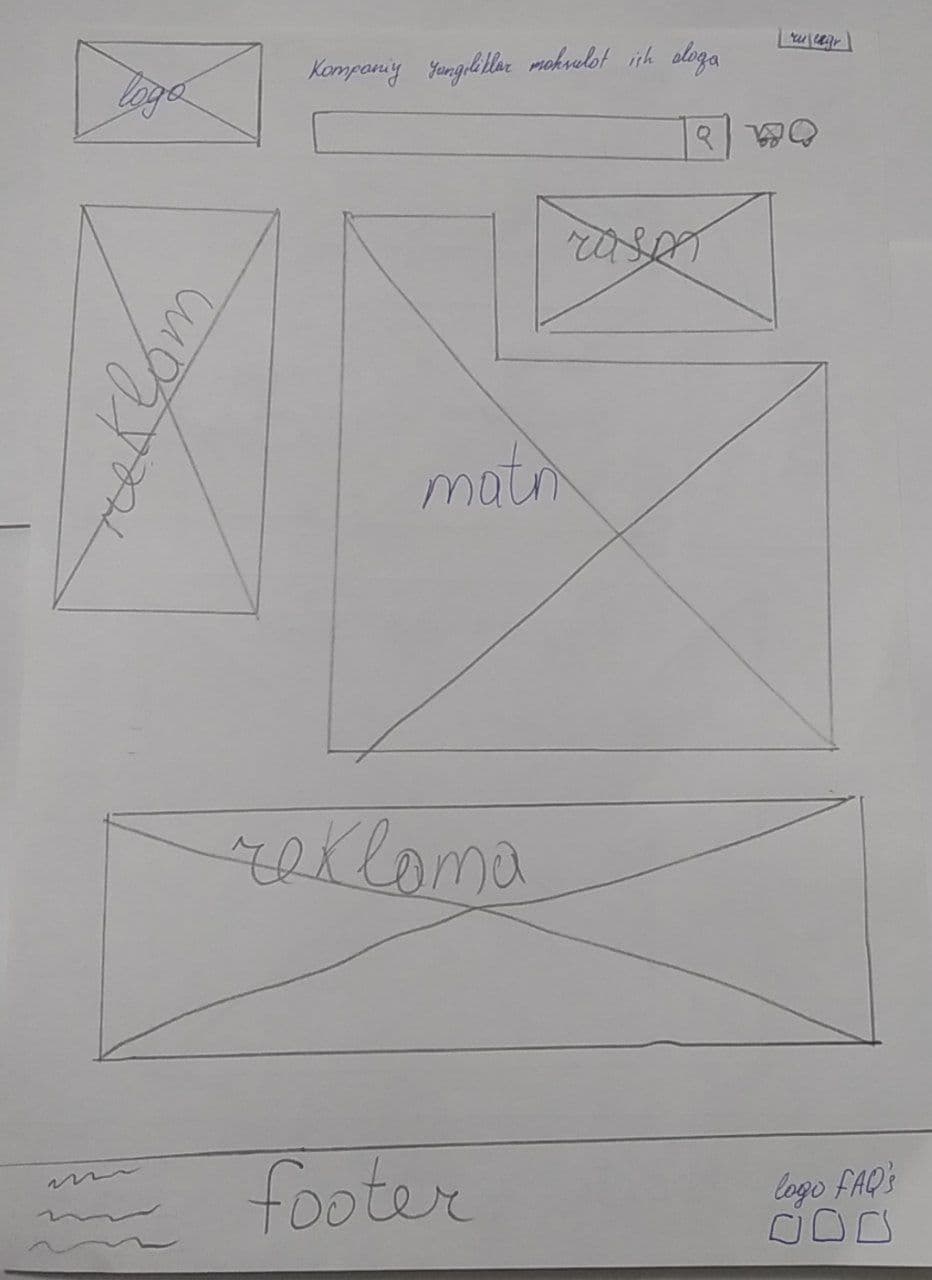 logo
Kompaniy Yangiliklar mahsulot ish aloqa
rasm
reklam
matn
reklama
footer
logo FAQ's